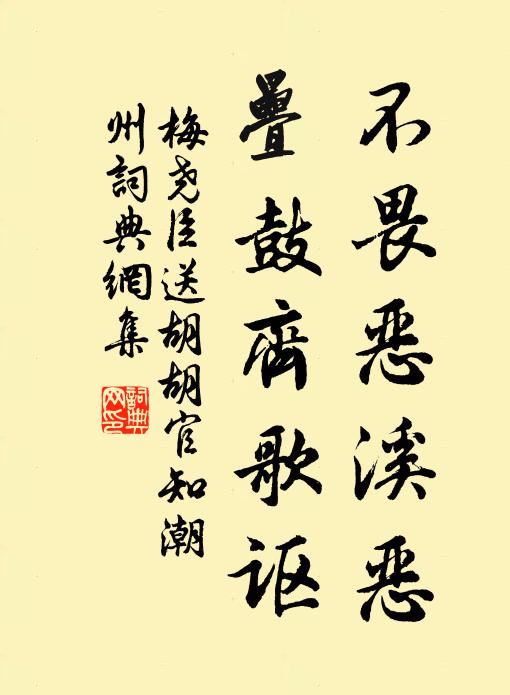 不畏恶溪恶
疊鼓齊歌讴
梅尧臣送胡胡官知潮
州詞典網集
詞典网印